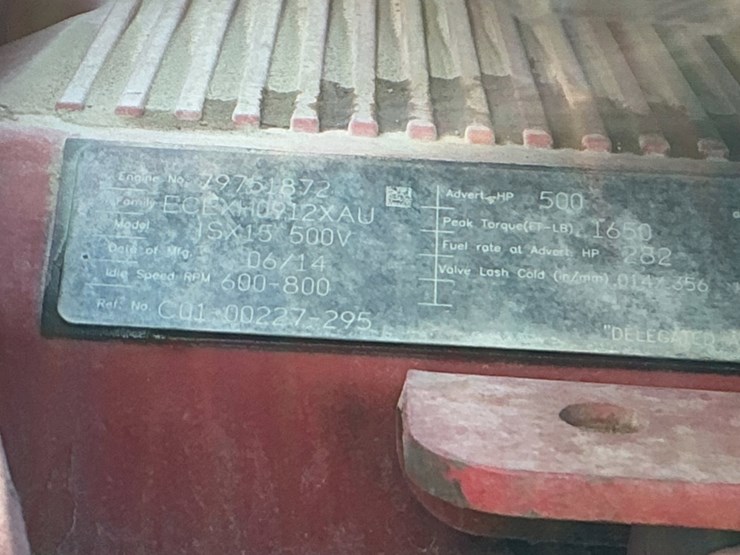 Engine No. 79751872
Family ECEXH0912XAU
Model ISX15 500V
Date of Mfg. 06/14
Idle Speed RPM 600-800
Ref. No. CU1-00227-295
Advert. HP 500
Peak Torque(FT-LB). 1650
Fuel rate at Advert HP 282
Valve Lash Cold (in/mm) .014/.356
"DELEGATED